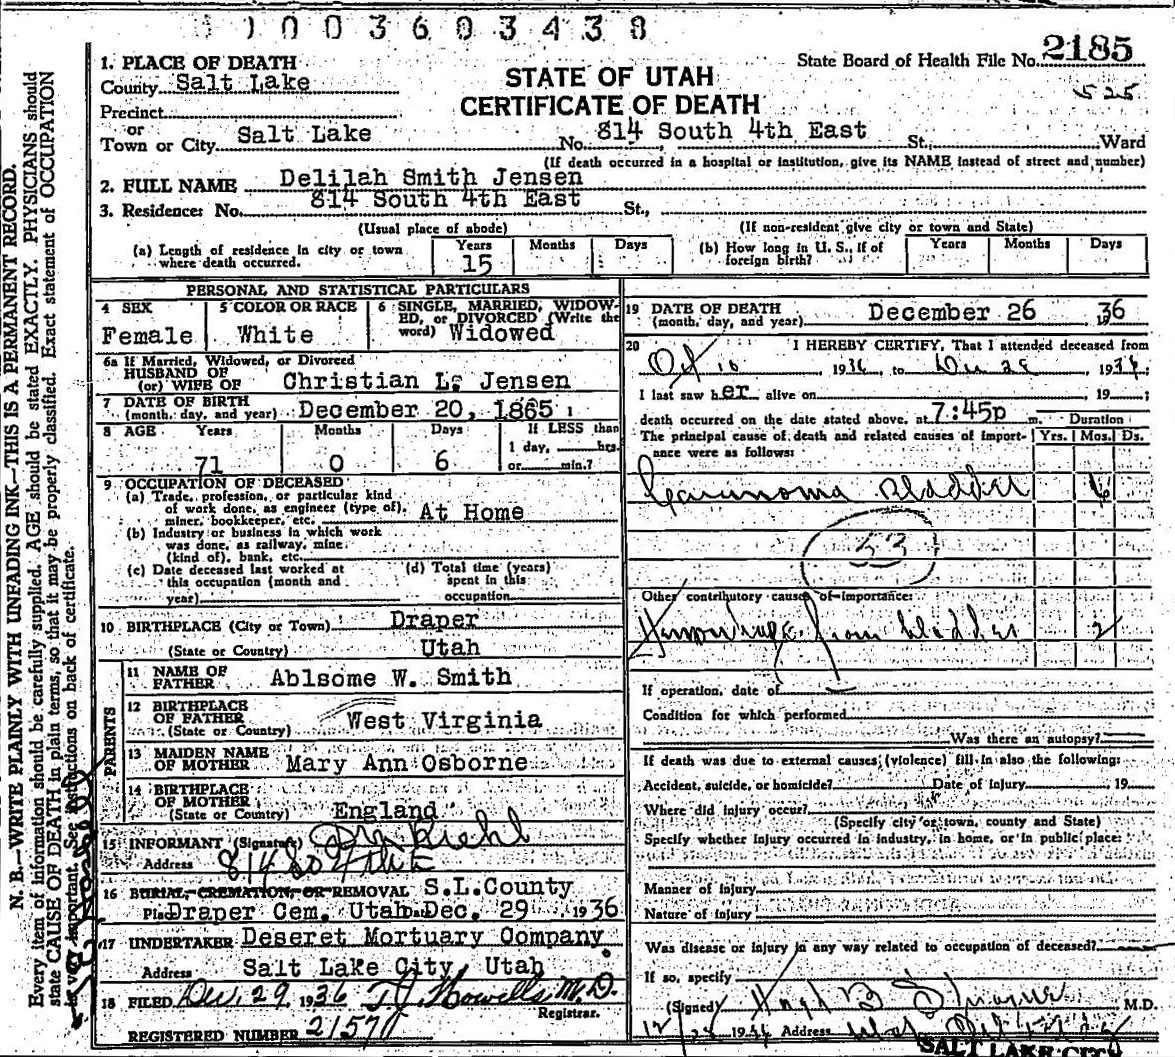 1003603438
State Board of Health File No. 2185
525
1. PLACE OF DEATH
County Salt Lake
STATE OF UTAH
CERTIFICATE OF DEATH
Precinct
or
Town or City Salt Lake No. 814 South 4th East St., Ward
(If death occurred in a hospital or institution, give its NAME instead of street and number)
2. FULL NAME Delilah Smith Jensen
3. Residence: No. 814 South 4th East St.,
(Usual place of abode) (If non-resident give city or town and State)
(a) Length of residence in city or town where death occurred. Years 15 Months Days
(b) How long in U. S., if of foreign birth? Years Months Days
PERSONAL AND STATISTICAL PARTICULARS
4 SEX Female
5 COLOR OR RACE White
6 SINGLE, MARRIED, WIDOWED, or DIVORCED (Write the word) Widowed
6a If Married, Widowed, or Divorced
HUSBAND OF
(or) WIFE OF Christian L. Jensen
7 DATE OF BIRTH
(month, day, and year) December 20, 1865
8 AGE Years 71 Months 0 Days 6 If LESS than 1 day, hrs. or min.?
9 OCCUPATION OF DECEASED
(a) Trade, profession, or particular kind
of work done, as engineer (type of),
miner, bookkeeper, etc. At Home
(b) Industry or business in which work
was done, as railway, mine
(kind of), bank, etc.
(c) Date deceased last worked at
this occupation (month and
year)
(d) Total time (years)
spent in this
occupation
10 BIRTHPLACE (City or Town) Draper
(State or Country) Utah
PARENTS
11 NAME OF
FATHER Ablsome W. Smith
12 BIRTHPLACE
OF FATHER
(State or Country) West Virginia
13 MAIDEN NAME
OF MOTHER Mary Ann Osborne
14 BIRTHPLACE
OF MOTHER
(State or Country) England
15 INFORMANT (Signature)
Address 814 So 4th E
16 BURIAL, CREMATION, OR REMOVAL S.L.County
Place Draper Cem. Utah Dec. 29 1936
17 UNDERTAKER Deseret Mortuary Company
Address Salt Lake City, Utah
18 FILED Dec. 29, 1936 T.J. Howells, M.D.
Registrar.
REGISTERED NUMBER 21570
19 DATE OF DEATH
(month, day, and year) December 26 1936
20 I HEREBY CERTIFY, That I attended deceased from
Oct 10 1936 to 1936
I last saw her alive on 19
death occurred on the date stated above, at 7:45p m. Duration
The principal cause of death and related causes of importance were as follows: Yrs. Mos. Ds.
Carcinoma Bladder 6
53
Other contributory causes of importance:
Hemorrhage from bladder 2
If operation, date of
Condition for which performed
Was there an autopsy?
If death was due to external causes (violence) fill in also the following:
Accident, suicide, or homicide? Date of injury 19
Where did injury occur?
(Specify city or town, county and State)
Specify whether injury occurred in industry, in home, or in public place:
Manner of injury
Nature of injury
Was disease or injury in any way related to occupation of deceased?
If so, specify
(Signed) Hugh B M.D.
12/28 1936 Address
SALT LAKE CITY
N. B.—WRITE PLAINLY WITH UNFADING INK—THIS IS A PERMANENT RECORD.
Every item of information should be carefully supplied. AGE should be stated EXACTLY. PHYSICIANS should
state CAUSE OF DEATH in plain terms, so that it may be properly classified. Exact statement of OCCUPATION
is very important. See instructions on back of certificate.